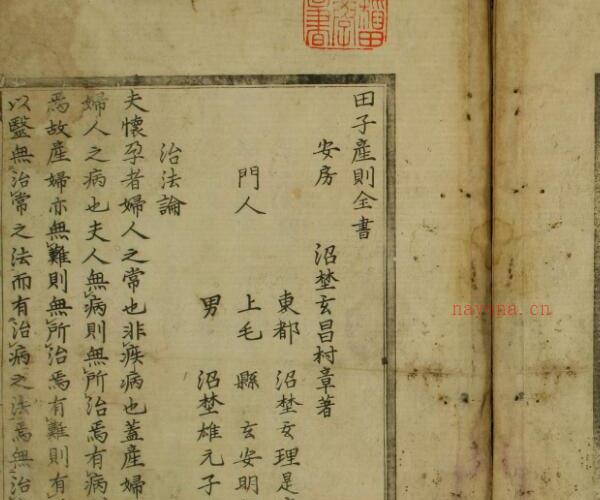 田子產則全書
安房 沼埜玄昌村章著
東都 沼埜玄理是
門人 上毛 縣玄安明
男 沼埜雄元子
治法論
夫懷孕者婦人之常也非疾病也蓋產婦
婦人之病也夫人無病則無所治焉有病
焉故產婦亦無難則無所治焉有難則有
以毉無治常之法而有治病之法焉無治
nayona.cn